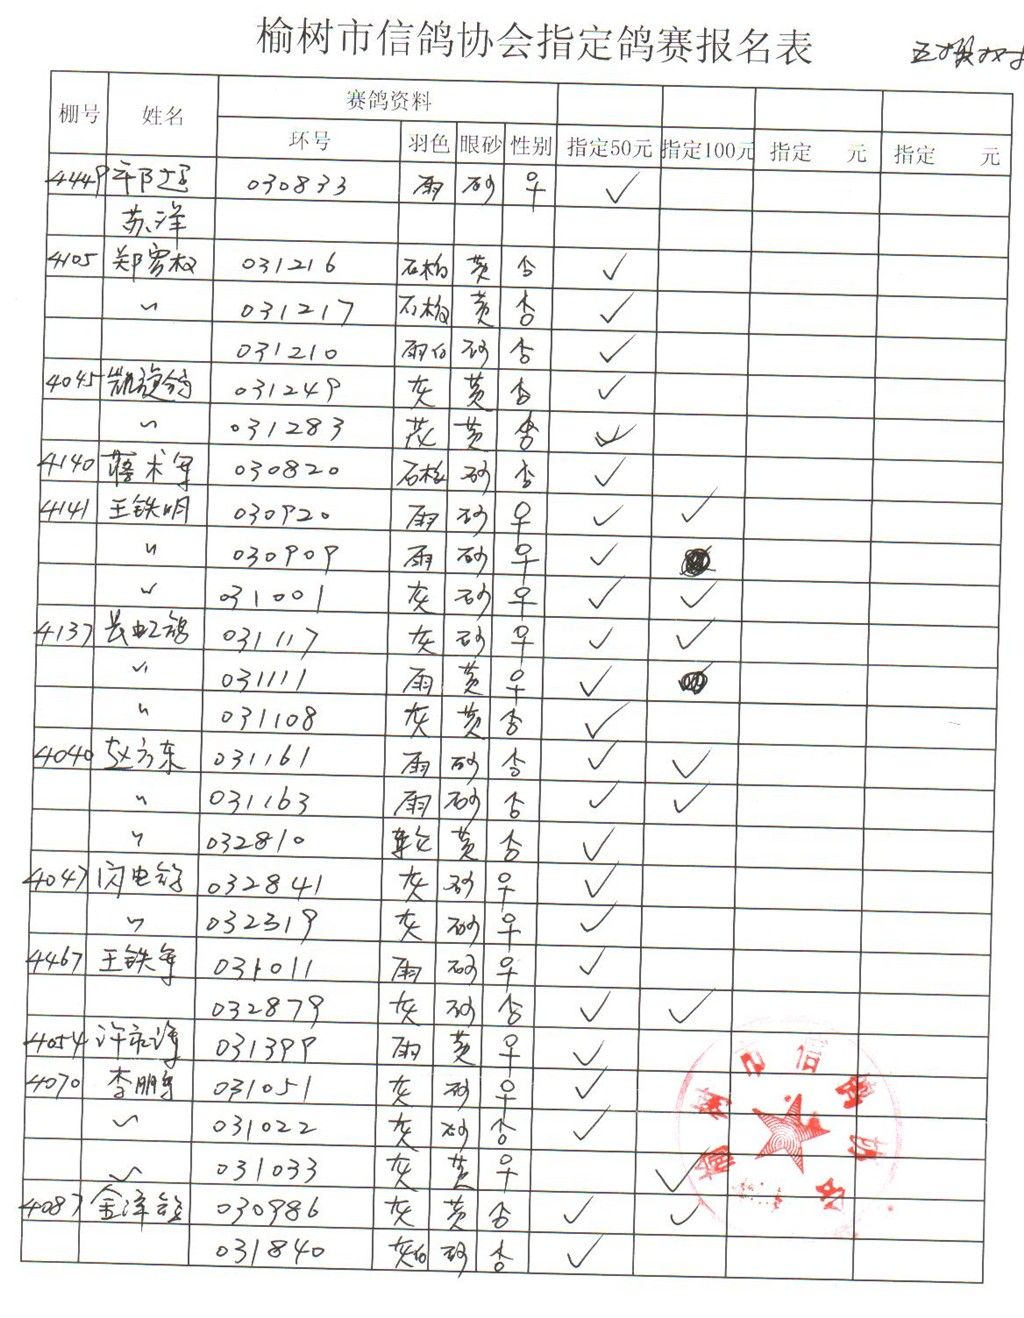 榆树市信鸽协会指定鸽赛报名表
棚号 姓名 赛鸽资料
环号 羽色 眼砂 性别 指定50元 指定100元 指定 元 指定 元
4449 030833 雨 砂 ♀ ✓
苏洋
4105 031216 黄 ✓
〃 031217 黄 ✓
031210 砂 ✓
4045 凯旋鸽 031249 灰 黄 ✓
〃 031283 黄 ✓
4140 030820 砂 ✓
4141 王铁明 030920 雨 砂 ♀ ✓ ✓
〃 030909 雨 砂 ♀ ✓
〃 031001 灰 砂 ♀ ✓ ✓
4137 长虹鸽 031117 灰 砂 ♀ ✓ ✓
〃 031111 雨 黄 ♀ ✓
〃 031108 灰 黄 ✓
4040 赵方东 031161 雨 砂 ✓ ✓
〃 031163 雨 砂 ✓ ✓
〃 032810 黄 ✓
4047 闪电鸽 032841 灰 砂 ♀ ✓
〃 032319 灰 砂 ♀ ✓
4467 王铁军 031011 雨 砂 ♀ ✓
032879 灰 砂 ✓ ✓
4054 031399 雨 黄 ♀ ✓
4070 031051 灰 砂 ♀ ✓
〃 031022 灰 砂 ✓
〃 031033 灰 黄 ♀ ✓
4087 金泽鸽 030986 灰 黄 ✓ ✓
031840 砂 ✓
榆树市信鸽协会